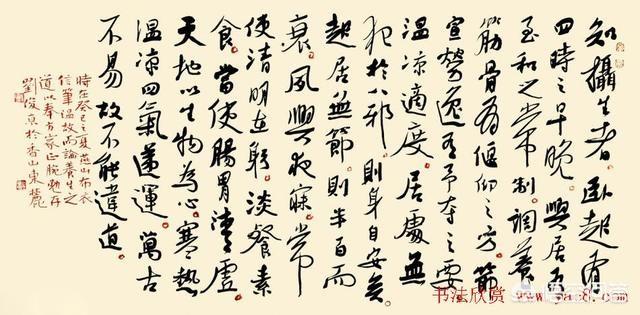 知攝生者臥起有
四時之早晚興居有
至和之常制調養
筋骨有偃仰之方節
宣勞逸有予奪之要
溫涼適度居處無
犯於八邪則身自安矣
起居無節則半百而
衰夙興夜寐常
使清明在躬淡餐素
食當使腸胃清虛
天地以生物為心寒熱
溫涼四氣遞運萬古
不易故不能違道
時在癸巳之夏燕山布衣
信筆溫故而論養生之
道以奉方家正腕
劉俊京於香山東麓
书法欣赏 www.yac8.com
悟空问答